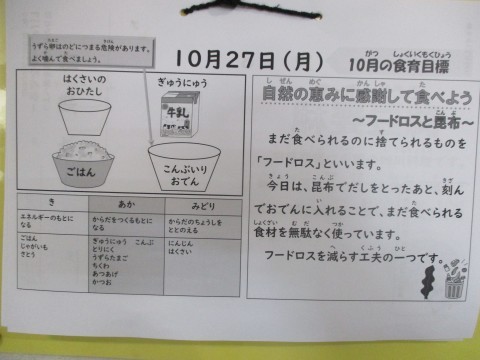 うずら卵はのどにつまる危険があります。
よく噛んで食べましょう。
10月27日(月)
10月の食育目標
はくさいの
おひたし
ぎゅうにゅう
牛乳
ごはん
こんぶいり
おでん
き
あか
みどり
エネルギーのもとに
なる
からだをつくるもとに
なる
からだのちょうしを
ととのえる
ごはん
じゃがいも
さとう
ぎゅうにゅう こんぶ
とりにく
うずらたまご
ちくわ
あつあげ
かつお
にんじん
はくさい
自然の恵みに感謝して食べよう
～フードロスと昆布～
まだ食べられるのに捨てられるものを
「フードロス」といいます。
今日は、昆布でだしをとったあと、刻ん
でおでんに入れることで、まだ食べられる
食材を無駄なく使っています。
フードロスを減らす工夫の一つです。